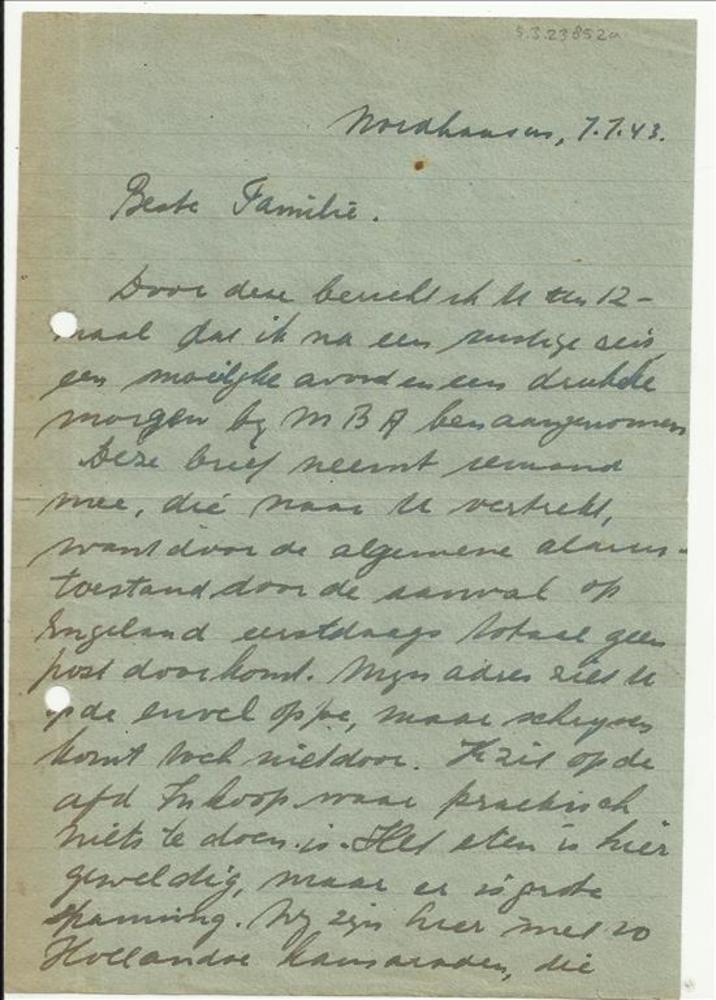 S.3.23852a
Nordhausen, 7.7.43.
Beste Familie.
Door deze bericht ik U 12-
maal dat ik na een rustige reis
een moeilijke avond en een drukke
morgen bij M B A ben aangenomen
Deze brief neemt iemand
mee, die naar U vertrekt,
want door de algemene alarm-
toestand door de aanval op
Engeland eerstdaags totaal geen
post doorkomt. Mijn adres ziet U
op de enveloppe, maar schrijven
komt toch niet door. Ik zit op de
afd Inkoop waar practisch
niets te doen is. Het eten is hier
geweldig, maar er is grote
spanning. Wij zijn hier met 20
Hollandse kameraden, die